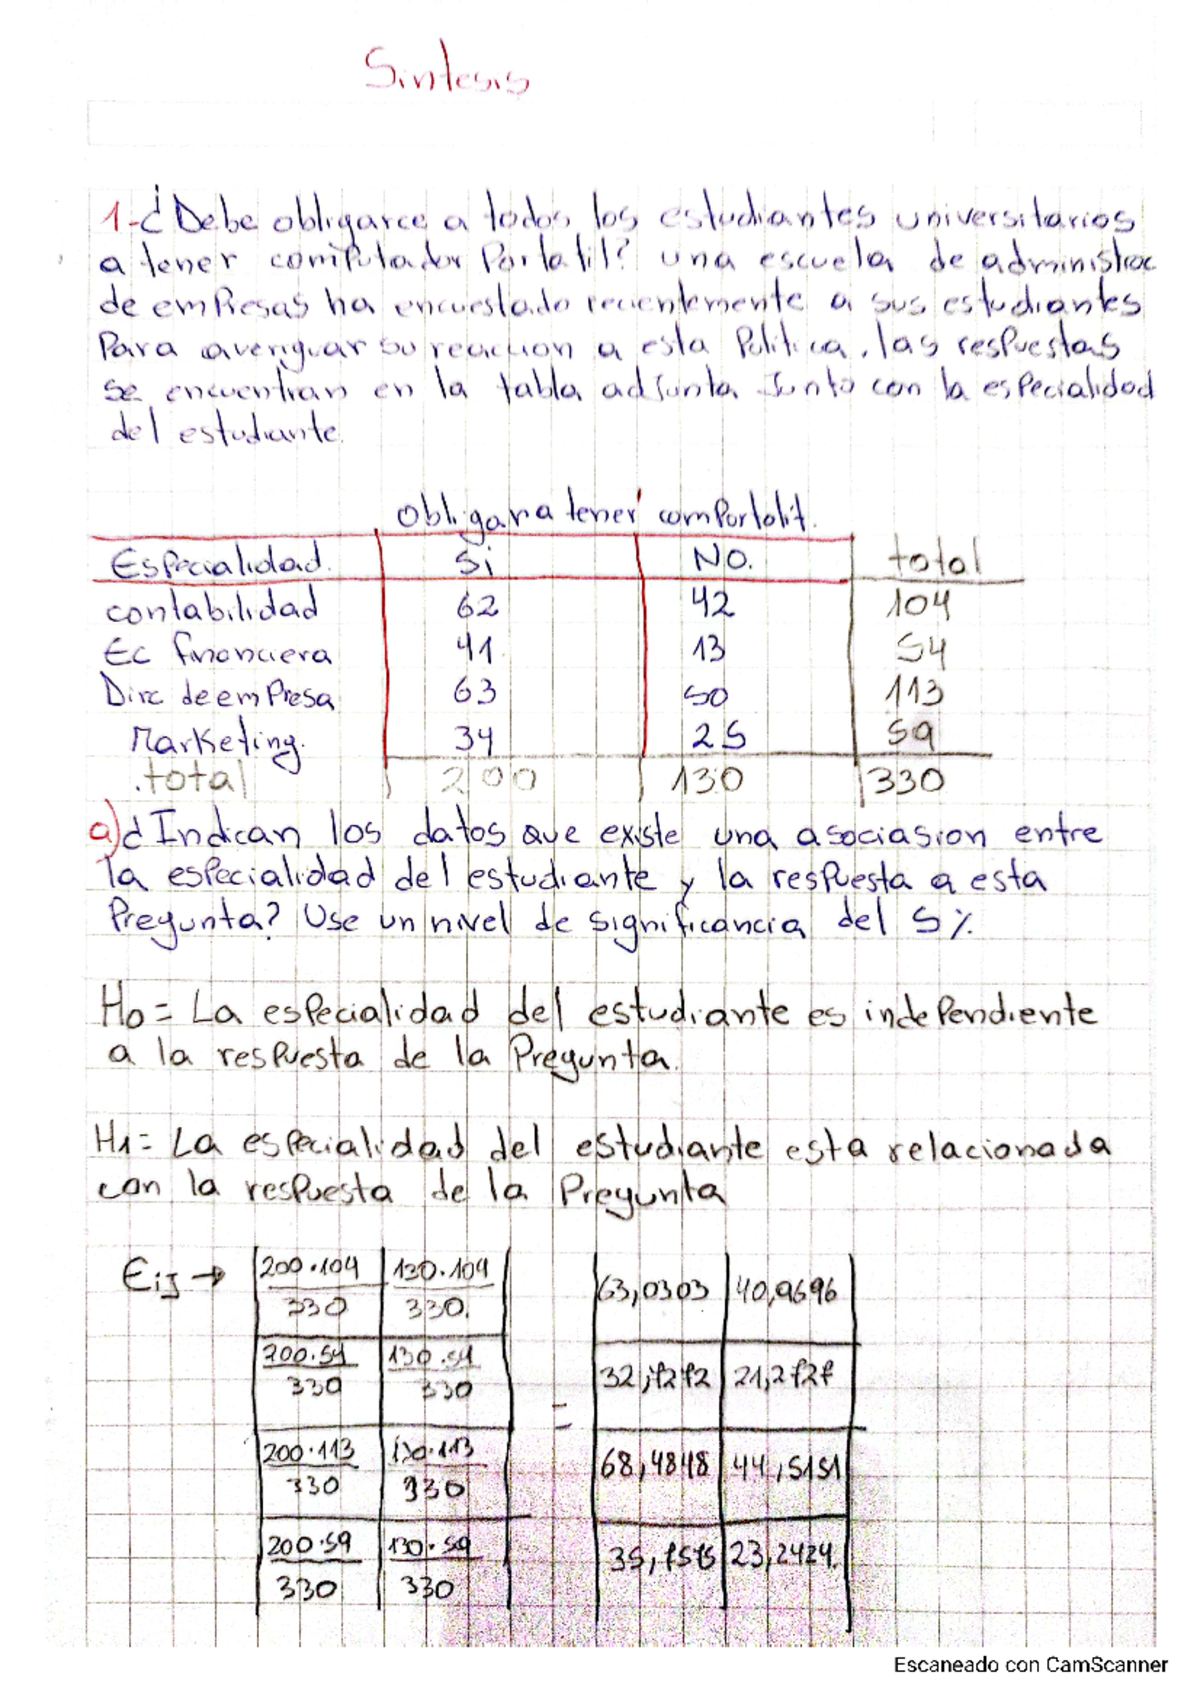 Sintesis
1-¿Debe obligarce a todos los estudiantes universitarios
a tener computador Portatil? una escuela de administrac
de empresas ha encuestado recientemente a sus estudiantes
Para averiguar su reaccion a esta Politica, las respuestas
se encuentran en la tabla adjunta Junto con la especialidad
del estudiante.
obligar a tener comPortatit.
Especialidad. Si NO. total
contabilidad 62 42 104
Ec financiera 41 13 54
Dirc de emPresa 63 50 113
Marketing. 34 25 59
.total 200 130 330
a)¿Indican los datos que existe una asociasion entre
la especialidad del estudiante y la respuesta a esta
Pregunta? Use un nivel de significancia del 5%.
H0= La especialidad del estudiante es independiente
a la respuesta de la Pregunta.
H1= La especialidad del estudiante esta relacionada
con la respuesta de la Pregunta
Eij → 200.104 130.104 63,0303 40,9696
330 330.
200.54 130.54 32,7272 21,2727
330 330
=
200.113 130.113 68,4848 44,5151
330 330
200.59 130.59 35,7575 23,2424.
330 330
Escaneado con CamScanner